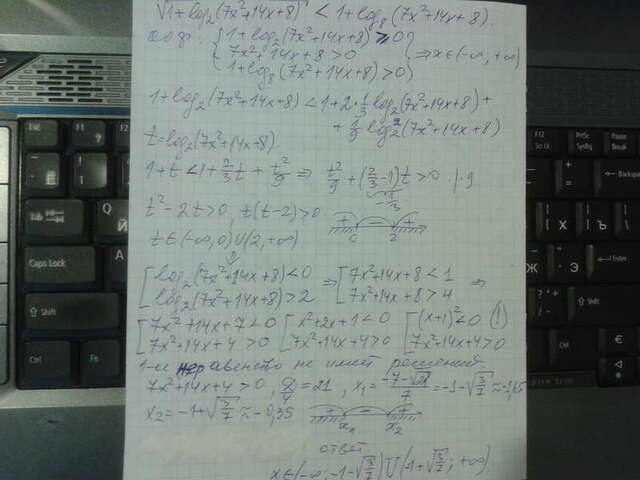 √1+log₂(7x²+14x+8) < 1+log₈(7x²+14x+8).
ОДЗ: { 1+log₂(7x²+14x+8) ≥ 0
7x²+14x+8 > 0 } ⇒ x∈(-∞,+∞)
1+log₈(7x²+14x+8) > 0
1+log₂(7x²+14x+8) < 1+2·1/3 log₂(7x²+14x+8)+
+1/9 log₂²(7x²+14x+8)
t=log₂(7x²+14x+8)
1+t < 1+2/3t+t²/9 ⇒ t²/9+(2/3-1)t>0 |·9
t²-2t>0, t(t-2)>0 + 0 - 2 +
t∈(-∞,0)U(2,+∞)
⇓
[ log₂(7x²+14x+8)<0 ⇒ [ 7x²+14x+8<1 ⇒
log₂(7x²+14x+8)>2 7x²+14x+8>4
[ 7x²+14x+7<0 [ x²+2x+1<0 [ (x+1)²<0 (!)
7x²+14x+4>0 7x²+14x+4>0 7x²+14x+4>0
1-е неравенство не имеет решения
7x²+14x+4>0, D/4=21, x₁=(-7-√21)/7=-1-√3/7≈-1,65
x₂=-1+√3/7≈-0,35 + x₁ - x₂ +
ответ
x∈(-∞;-1-√3/7)U(-1+√3/7;+∞)
Esc
F1
F12
PrtSc
SysRq
Pause
Break
Tab
Caps Lock
Shift
Ctrl
Fn
Backspace
Й
Х
Ъ
Ж
Э